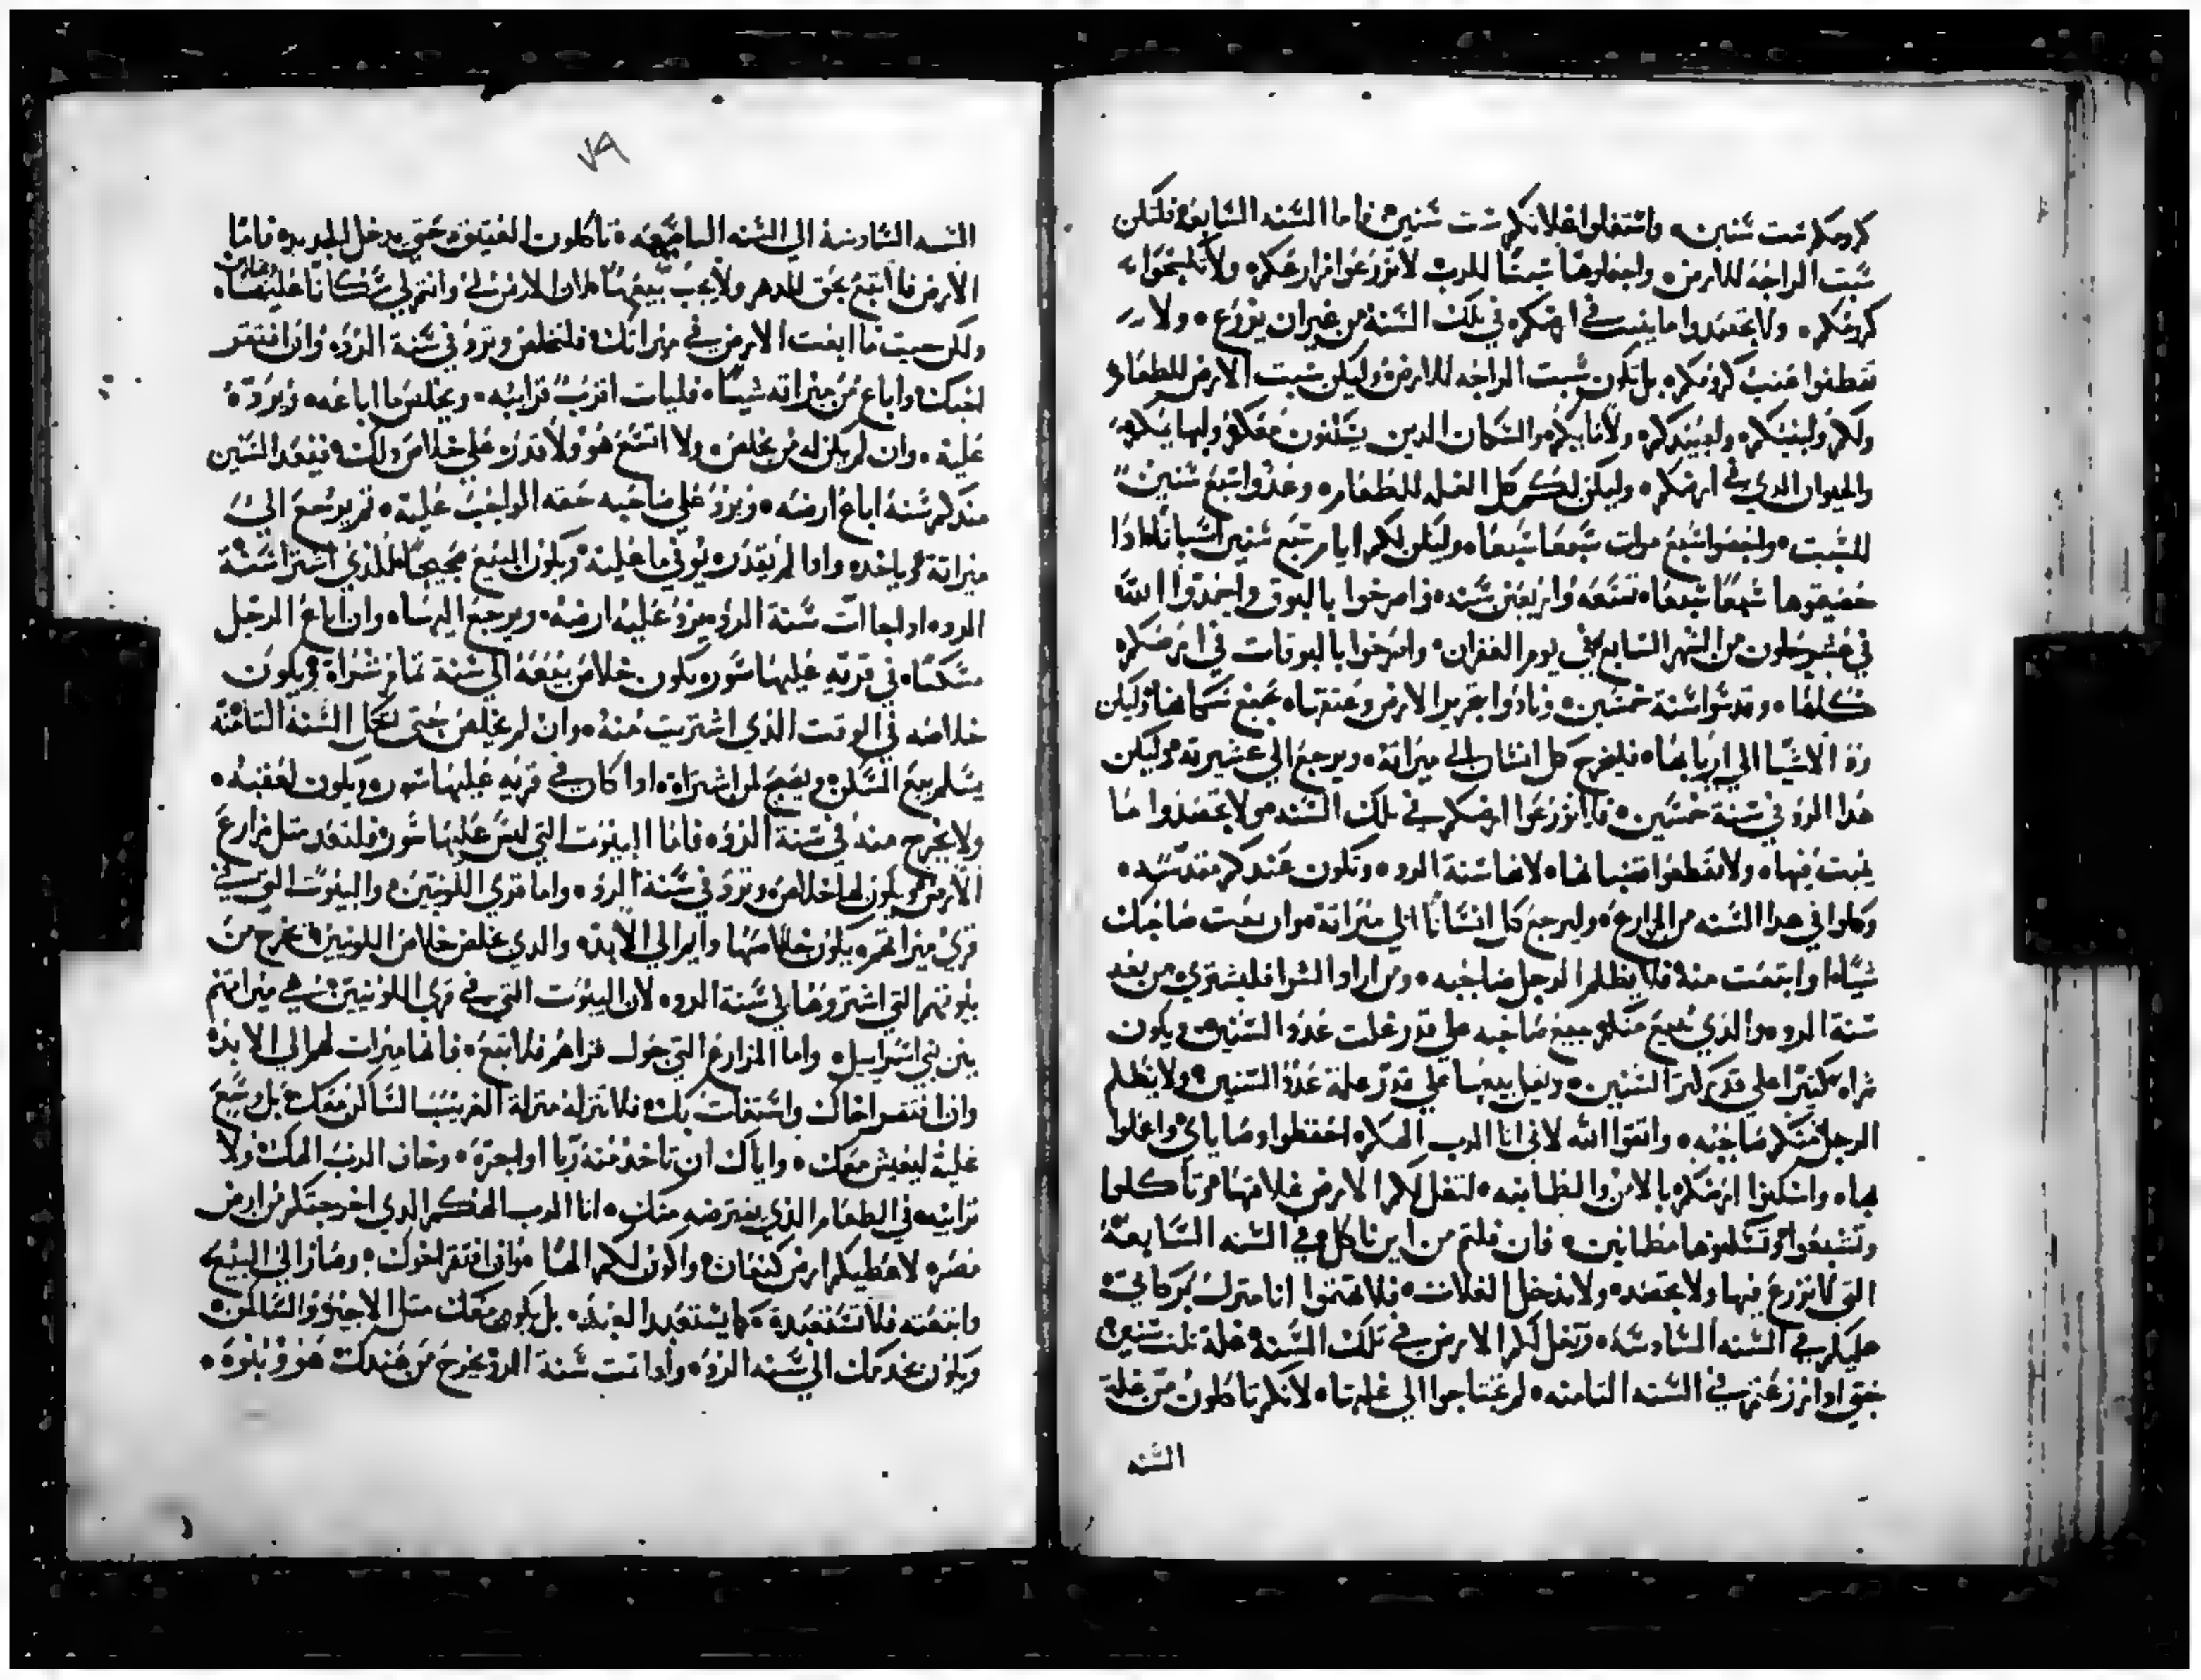 كرومكم ست سنين واستغلوا غلاتكم ست سنين فاما السنه السابعه فلتكن
سبت الراحه للارض واجعلوها سبتا للرب لا تزرعوا مزارعكم ولا تكسحوا
كرومكم ولا تحصدوا ما ينبت في ارضكم في تلك السنة من غير ان يزرع ولا
تقطفوا عنب كرومكم بل تكون سبت الراحه للارض وليكن سبت الارض للطعام
ولكم ولبنيكم ولعبيدكم ولأمايكم والسكان الدين يسكنون معكم ولبهايمكم
والحيوان الدي في ارضكم وليكن لكم كل الغله للطعام وعدوا سبع سنين
للسبت واحصوا سبع مرات سبعا سبعا وليكن لكم ايام سبع سنين اسباتا فادا
حصيتموها سبعا سبعا تسعه واربعين سنه فاصرخوا بالبوق واحمدوا الله
في عشر خلون من الشهر السابع في يوم الغفران واصرخوا بالبوقات في ارضكم
كلها وقدسوا سنة خمسين ونادوا بتحرير الارض وعتقها بجميع سكانها وليكن
رد الاشيا الي اربابها فليخرج كل انسان الي ميراته ويرجع الي عشيرته وليكن
هدا الرد في سنة خمسين فلا تزرعوا ارضكم في تلك السنه ولا تحصدوا ما
ينبت فيها ولا تقطعوا عنبها لانها سنة الرد وتكون عندكم مقدسه
وكلوا في هدا السنه من المزارع وليرجع كل انسانا الي ميراته وان بعت صاحبك
شيا او ابتعت منه فلا يظلم الرجل صاحبه ومن اراد الشرا فليشتري من بعد
سنة الرد والذي يبيع منكم يبيع صاحبه علي قدر غلت عدد السنين ويكون
شراه كثيرا علي قدر كثر السنين ويقل بيعها علي قدر غلة عدد السنين ولا يظلم
الرجل منكم صاحبه واتقوا الله لاني انا الرب الهكم احفظوا وصاياي واعملوا
بها واسكنوا ارضكم بالامن والطمانينه لتغل لكم الارض غلاتها وتاكلوا
وتشبعوا وتسكنوها مطمانين فان قلتم من اين ناكل في السنه السابعه
التي لا نزرع فيها ولا نحصد ولا ندخل الغلات فلا تهتموا انا منزل بركاتي
عليكم في السنه السادسه وتغل لكم الارض في تلك السنة غلة تلت سنين
حتي ادا زرعتم في السنه التامنه لم تحتاجوا الي غلتها لانكم تاكلون من غلة
السنه
٧٩
السنه السادسة الي السنه التاسعه تاكلون العتيق حتي يدخل الجديد فاما
الارض فلا تبع بحق للدهر ولا يجب بيعها لان الارض لي وانتم لي سكانا عليها
ولكن حيت ما ابيعت الارض في ميراتك فلتخلص وترد في سنة الرد وان افتقر
اخيك واباع من ميراته شيا فليات اقرب قرايبه ويخلص ما اباعه ويرده
عليه وان لم يكن له من يخلص ولا اتسع هو ولا قدر علي خلاص دلك فيعد السنين
مند كم سنة اباع ارضه ويرد علي صاحبه حقه الواجب عليه تم يرجع الي
ميراته وياخده وادا لم يقدر يوفي ما عليه ويكون المبيع صحيحا للذي اشترا سنة
الرد اد اجاات سنة الرد يرد عليه ارضه ويرجع اليها وان اباع الرجل
مسكنا في قريه عليها سور يكون خلاص بيعه الي سنة تمام شراة ويكون
خلاصه في الوقت الذي اشتريت منه وان لم يخلص حتي تكمل السنة التامنة
يسلم بيع المسكن ويصح لمن اشتراه ادا كان في قريه عليها سور ويكون لعقبه
ولا يخرج منه في سنة الرد فاما البيوت التي ليس عليها سور فلتعد متل مزارع
الارض ويكون لها خلاص وترد في سنة الرد واما قري اللونيين والبيوت التي في
قري ميراتهم يكون خلاصها دايم الي الابد والدي يخلص خلاص اللونيين يخرج من
بيوتهم التي اشتروها في سنة الرد لان البيوت التي في قري اللونيين هي ميراتهم
بين بني اسراييل واما المزارع التي حول قراهم فلا تبع فانها ميرات لهم الي الابد
وان افتقر اخاك واستغات بك فلا تنزله منزلة الغريب الساكن معك بل وسع
عليه ليعيش معك واياك ان تاخذ منه ربا او اجرة وخاف الرب الهك ولا
ترابيه في الطعام الذي يقترضه منك انا الرب الهكم الدي اخرجتكم من ارض
مصر لاعطيكم ارض كنعان واكون لكم الها وان افتقر اخوك وصار الي البيع
وابتعته فلا تستعبدة كما يستعبد العبد بل يكون معك متل الاجير والساكن
ويكون يخدمك الي سنه الرد وادا اتت سنة الرد يخرج من عندك هو وبنوة